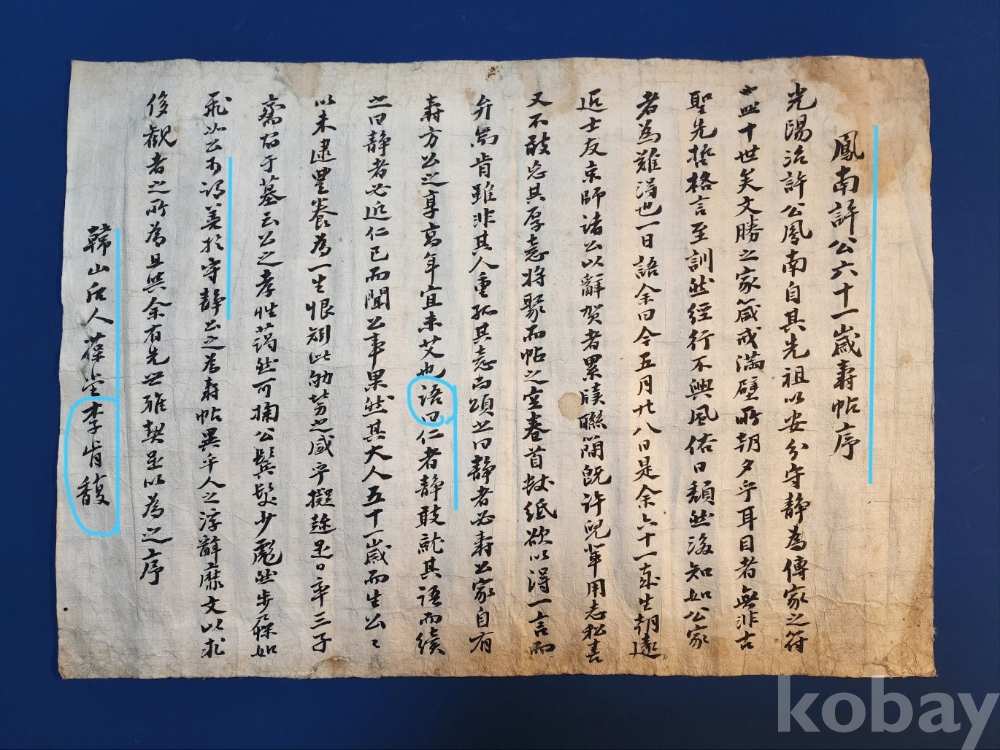 鳳南許公六十一歲壽帖序
光陽治許公鳳南自其先祖以安分守靜為傳家之符
十世美文勝之家箴戒滿壁所朝夕乎耳目者無非古
聖先哲格言至訓然經行不興風俗日頹然後知如公家
者為難得也一日語余曰今五月卄八日是余六十一歲生朝遠
近士友京師諸公以辭賀者累牘聯簡旣許兒輩用志私喜
又不敢忘其厚志將聚而帖之空卷首故紙欲以得一言而
弁焉肯雖非其人重孤其志而頌之曰靜者必壽公家自有
壽方公之享高年宜未艾也語曰仁者靜敢就其語而續
之曰靜者必近仁已而聞公事果然其大人五十一歲而生公公
以未逮畢養為一生恨刻此劬勞之感乎擬趁是日率三子
齋宿于墓云公之孝性藹然可掬公鬢髮少彪然步屧如
飛此公不得善於守靜公之卷壽帖異乎人之浮辭靡文以求
後觀者之所為且與余有先世雅契是以為之序
韓山后人葆堂李肯馥
kobay